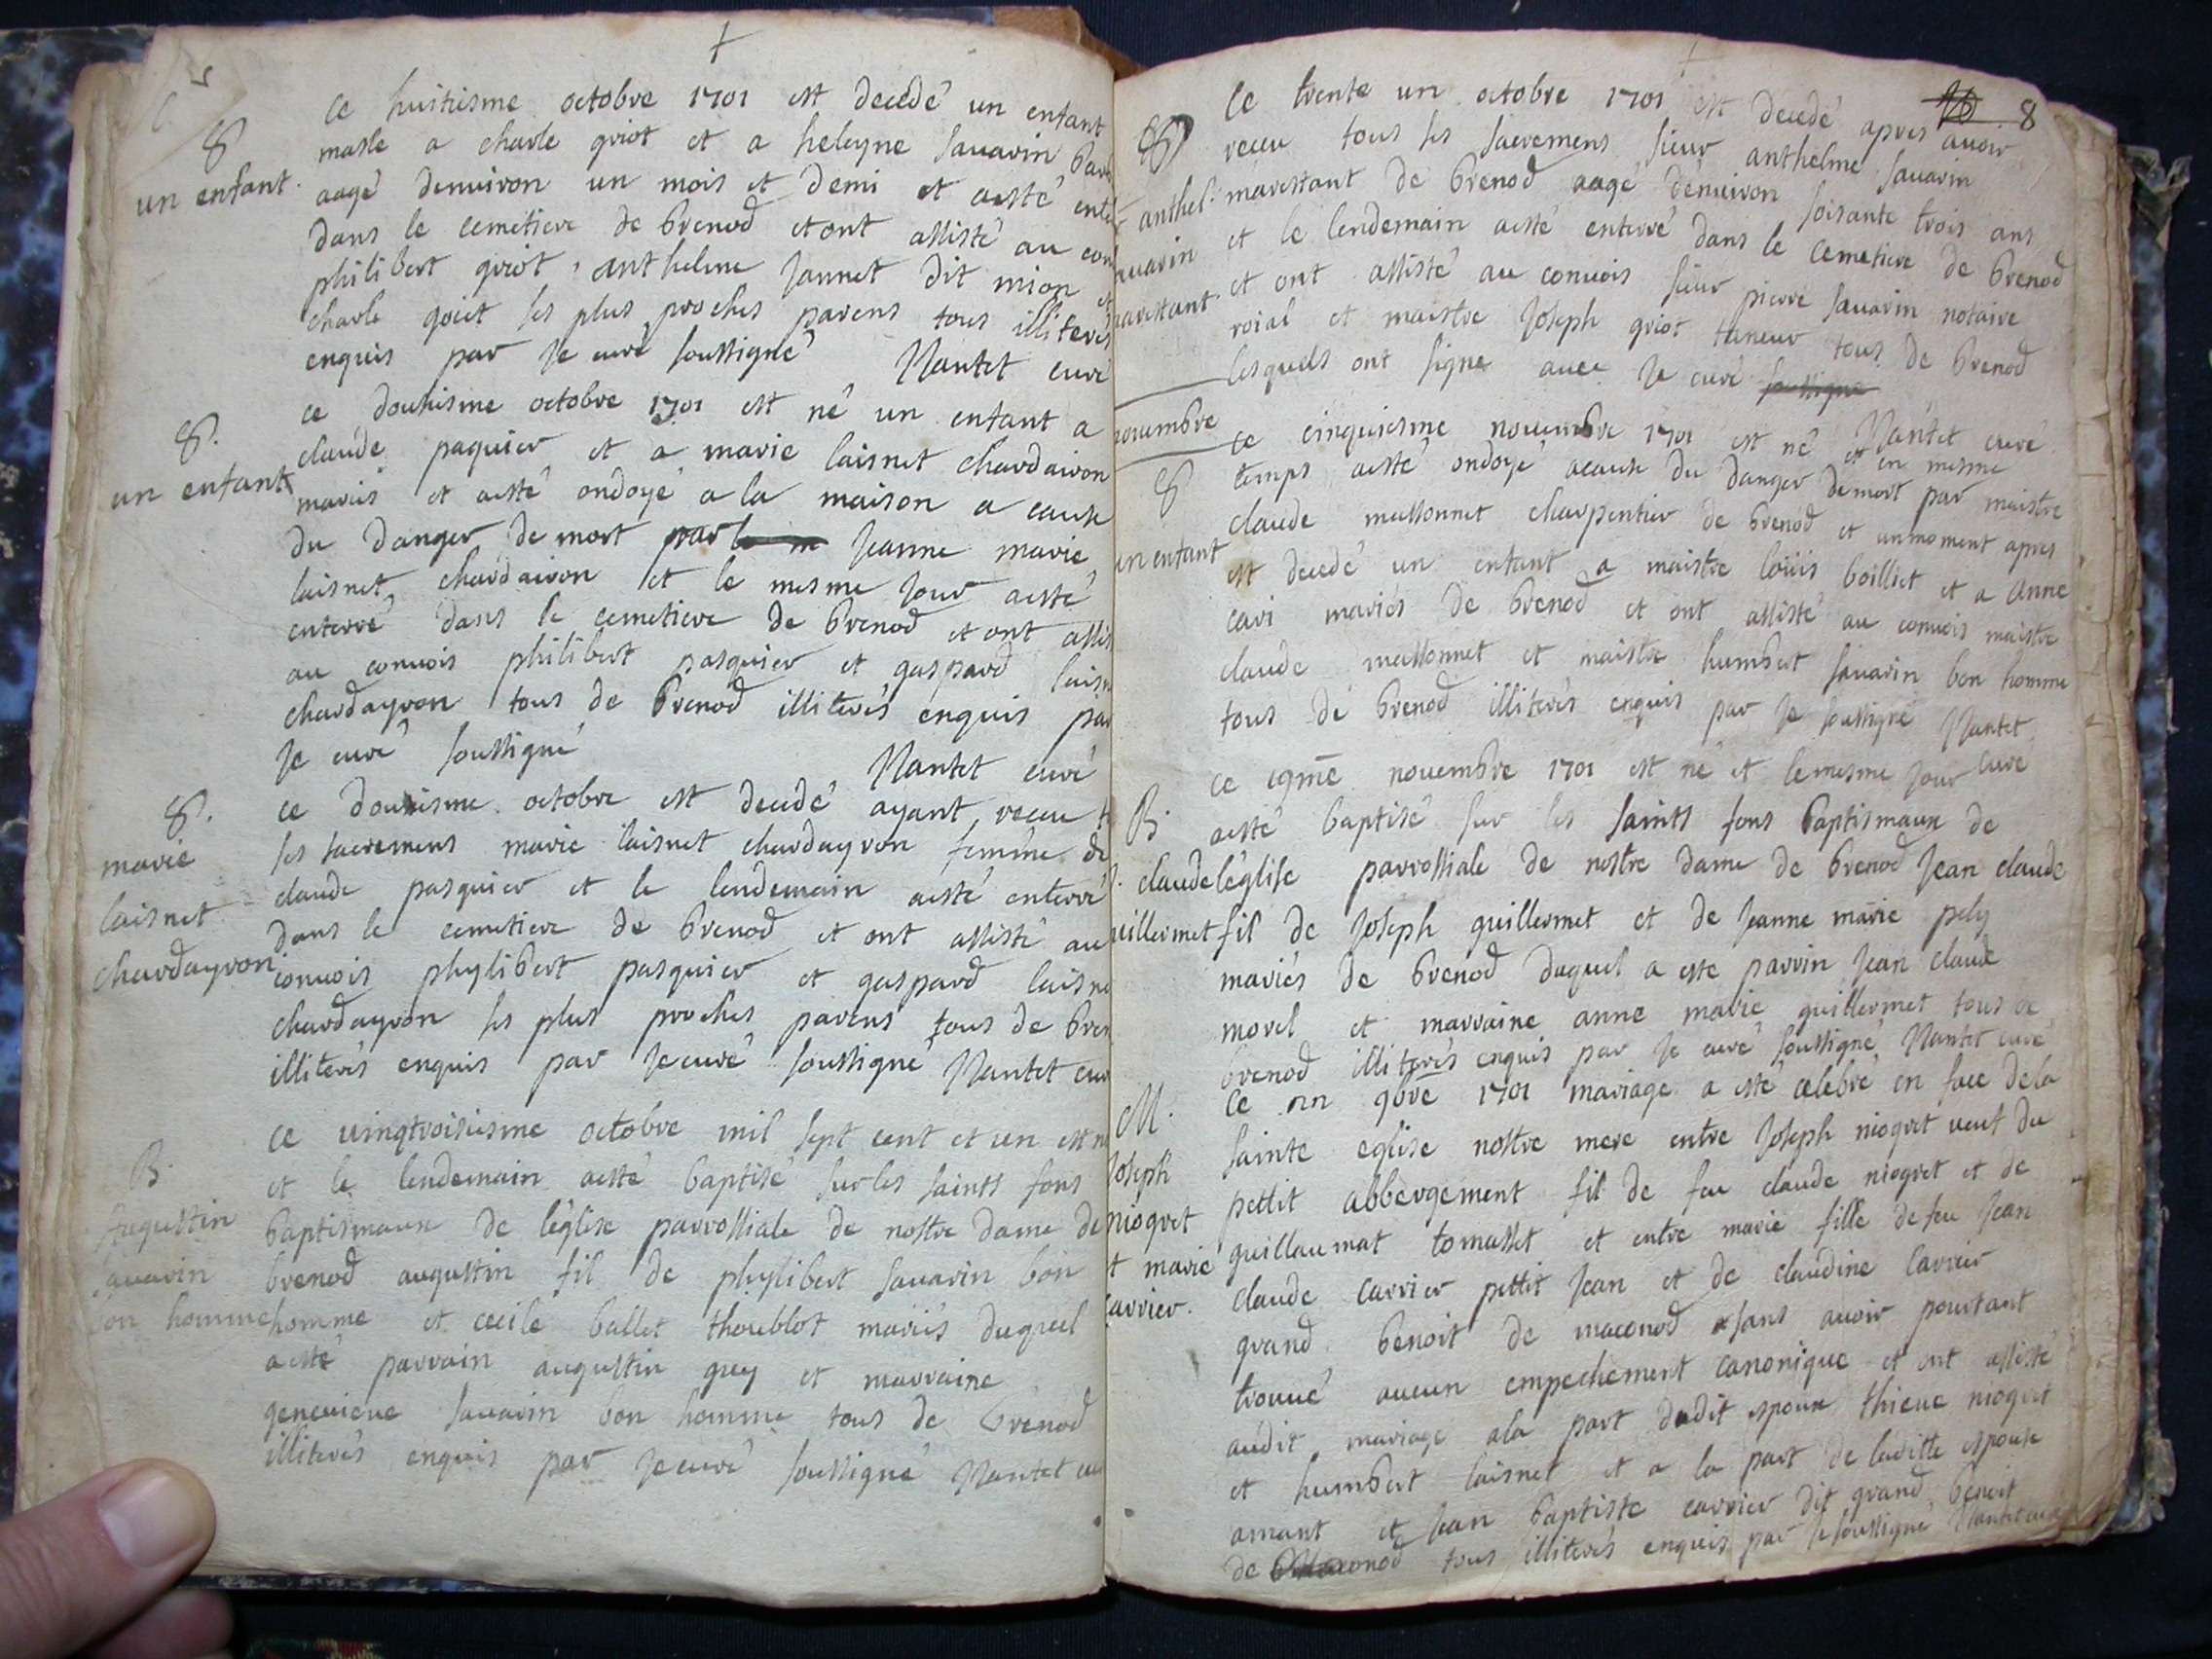 +
8
un enfant.
ce huitiesme octobre 1701 est decedé un enfant
masle a charle griot et a heleyne sauarin
aagé denuiron un mois et demi et aesté
dans le cemetiere de brenod et ont assisté au
philibert griot, anthelme jannet dit mion et
charle goiet ses plus proches parens tous illiterés
enquis par je curé soussigné Nantet curé
8.
un enfant
ce douziesme octobre 1701 est né un enfant a
claude paquier et a marie laisnet chardairon
mariés et aesté ondoyé a la maison a cause
du danger de mort par jeanne marie
laisnet chardairon et le mesme jour aesté
enterré dans le cemetiere de brenod et ont
au conuois philibert pasquier et gaspard
chardayron tous de brenod illiterés enquis par
je curé soussigné Nantet curé
8.
marie
laisnet
chardayron
ce douziesme octobre est decedé ayant receu
ses sacremens marie laisnet chardayron femme de
claude pasquier et le lendemain aesté enterré
dans le cemetiere de brenod et ont assisté au
conuois phylibert pasquier et gaspard
chardayron ses plus proches parens tous de
illiterés enquis par je curé soussigné Nantet
B.
Augustin
sauarin
bon homme
ce uingtroisiesme octobre mil sept cent et un est
et le lendemain aesté baptisé sur les saints fons
baptismaux de l'église parrossiale de nostre dame de
brenod augustin fil de phylibert sauarin bon
homme et cecile ballet thoublot mariés duquel
aesté parrain augustin guy et marraine
geneuieue sauarin bon homme tous de brenod
illiterés enquis par je curé soussigné Nantet
8
8
anthel.
ce trente un octobre 1701 est decedé apres auoir
receu tous ses sacremens sieur anthelme sauarin
marestant de brenod aagé denuiron soisante trois ans
et le lendemain aesté enterré dans le cemetiere de brenod
et ont assisté au conuois sieur pierre sauarin notaire
roial et maistre joseph griot taneur tous de brenod
lesquels ont signe auec je curé soussigné
Nantet curé
8
un enfant
ce cinquiesme nouembre 1701 est né et en mesme
temps aesté ondoyé acause du danger demort par maistre
claude massonnet charpentier de brenod et unmoment apres
est decedé un enfant a maistre loüis boilliet et a anne
cari mariés de brenod et ont assisté au conuois maistre
claude massonnet et maistre humbert sauarin bon homme
tous de brenod illiterés enquis par je soussigné Nantet
curé
B.
claude
ce nouembre 1701 est né et lemesme jour
aesté baptisé sur les saints fons baptismaux de
l'église parrossiale de nostre dame de brenod jean claude
fil de joseph guillermet et de jeanne marie pely
mariés de brenod duquel a este parrin jean claude
morel et marraine anne marie guillermet tous de
brenod illiterés enquis par je curé soussigné Nantet curé
M.
joseph
niogret
et marie
carrier.
ce 9bre 1701 mariage a esté celebré en face dela
sainte eglise nostre mere entre joseph niogret ueuf du
pettit abbergement fil de feu claude niogret et de
guillaumat tomasset et entre marie fille defeu jean
claude carrier pettit jean et de claudine carrier
grand benoit de maconod sans auoir pourtant
trouué aucun empechement canonique et ont assisté
audit mariage ala part dudit espoux thieue niogret
et humbert laisnet et a la part de laditte espouse
amant et jean baptiste carrier dit grand benoit
de maconod tous illiterés enquis par je soussigné Nantet curé